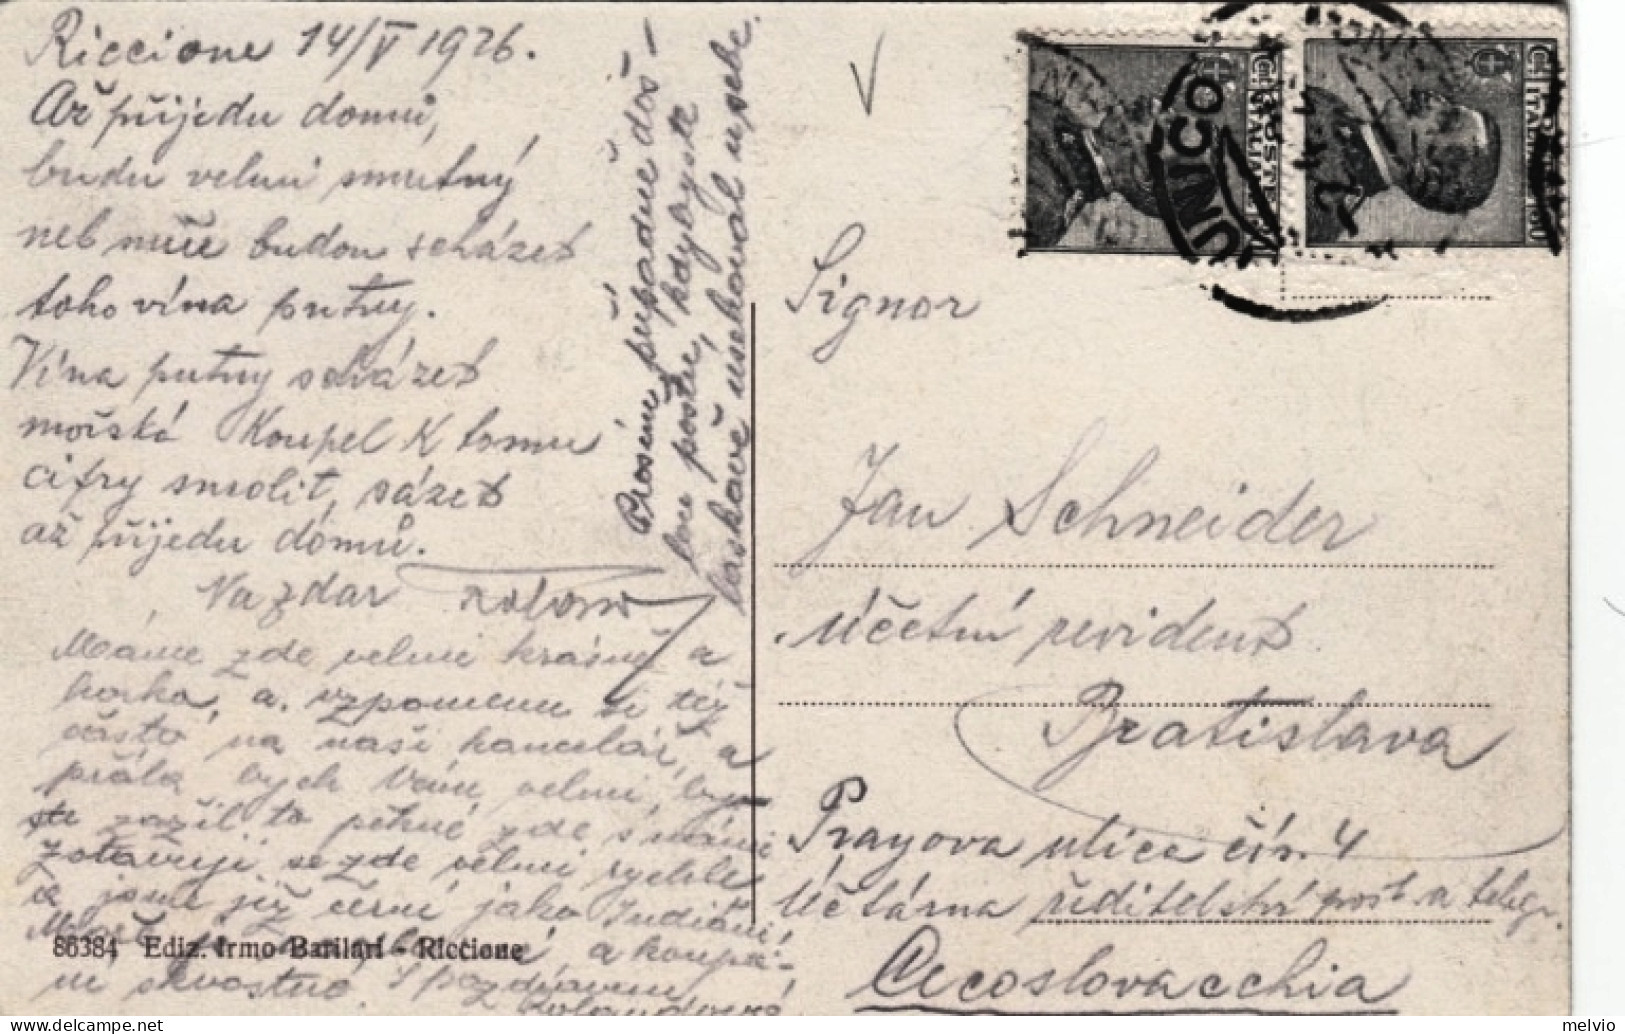 Riccione 14/V 1926.
Až přijedu domů,
budu velmi smutný
neb mě budou scházet
toho vína putny.
Vína putny scházet
mořská Koupel K tomu
cifry smolit, sázet
až přijedu domů.
Na zdar
Máme zde velmi krásně a
horko, a vzpomenu si též
často na naši kancelář, a
přála bych Vám velmi, by
ste zažil to pěkné zde s námi
zotavuji se zde velmi rychle
a jsme již černí jako Indiáni,
a koupá-
ní skvostné. S pozdravem
Prosím případné doš-
lou poštu, kdybyste
laskavě uschoval u sebe.
86384 Ediz. Irmo Barilari - Riccione
Signor
Jan Schneider
účetní revident
Bratislava
Prayova ulica čís. 4
Účtárna ředitelství pošt a telegr.
Cecoslovacchia
melvio